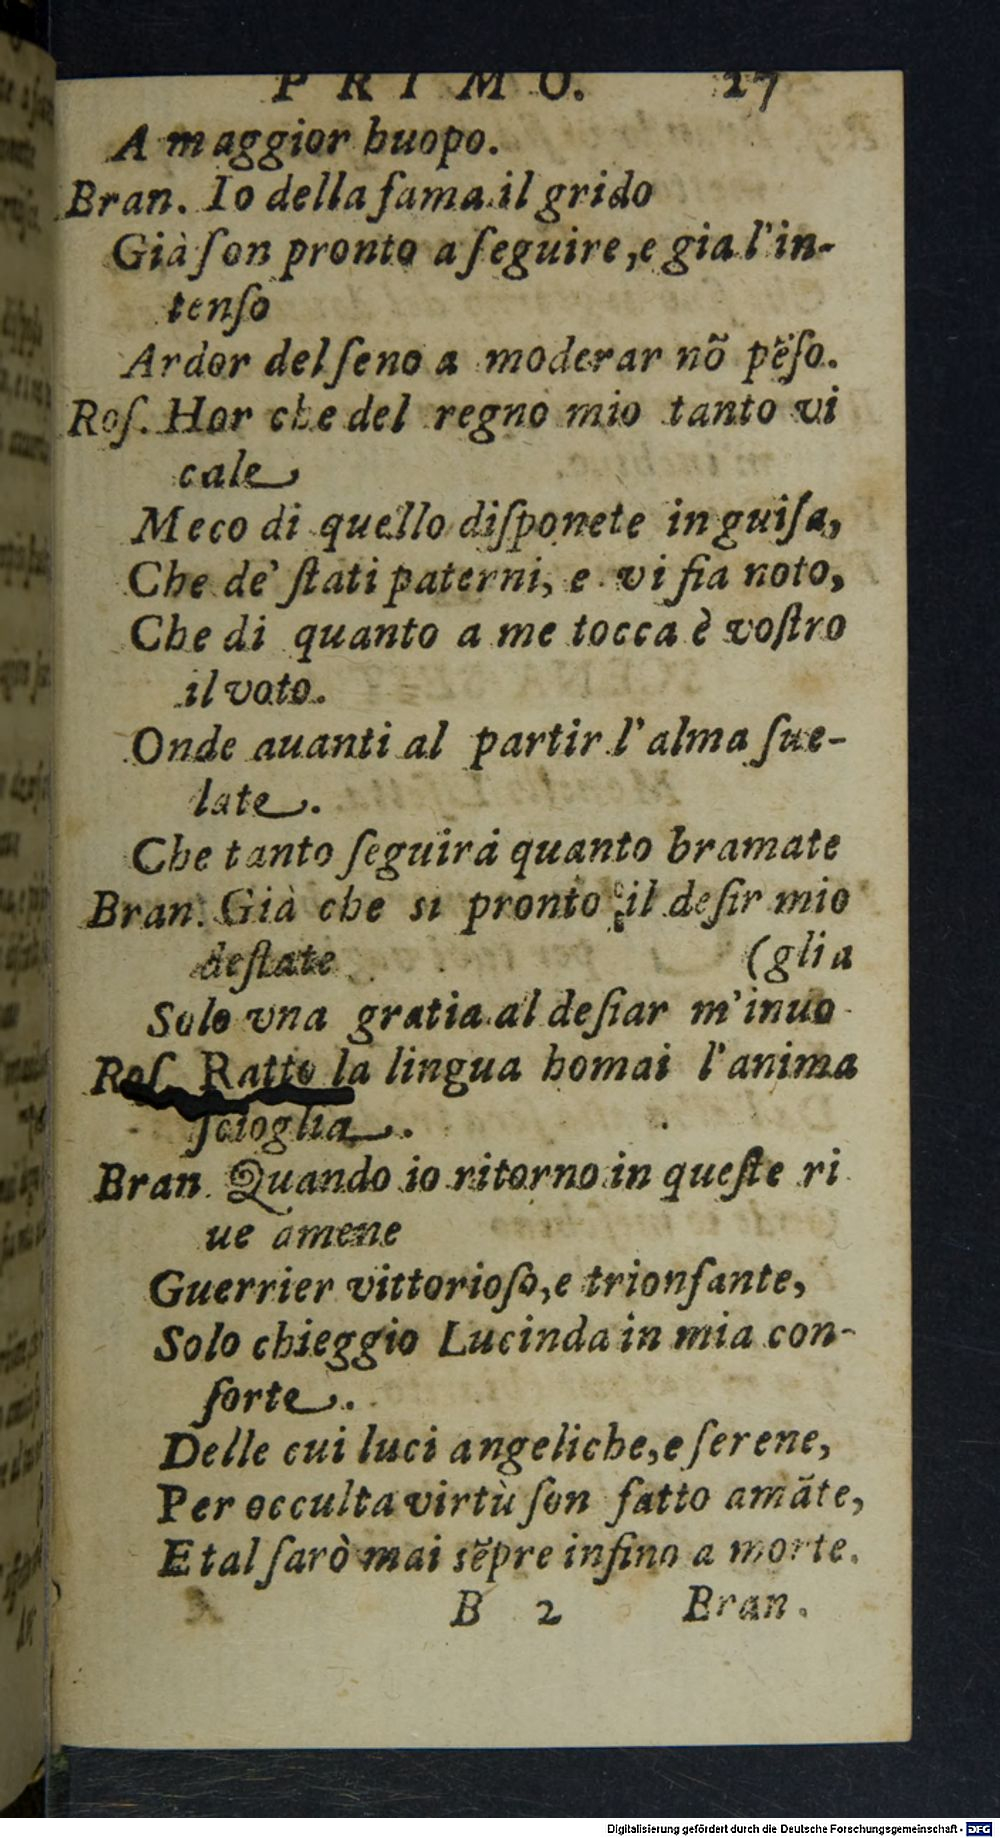 PRIMO. 27
A maggior huopo.
Bran. Io della fama il grido
Già ſon pronto a ſeguire, e gia l'in-
tenſo
Ardor del ſeno a moderar nõ pẽſo.
Roſ. Hor che del regno mio tanto vi
cale
Meco di quello diſponete in guiſa,
Che de' ſtati paterni, e vi fia noto,
Che di quanto a me tocca è voſtro
il voto.
Onde auanti al partir l'alma ſue-
late.
Che tanto ſeguirà quanto bramate
Bran. Già che si pronto il deſir mio
deſtate (glia
Solo vna gratia al deſiar m'inuo
Roſ. Ratto la lingua homai l'anima
ſcioglia.
Bran. Quando io ritorno in queſte ri
ue amene
Guerrier vittorioſo, e trionfante,
Solo chieggio Lucinda in mia con-
ſorte.
Delle cui luci angeliche, e ſerene,
Per occulta virtù ſon fatto amãte,
E tal ſarò mai sẽpre infino a morte.
B 2 Bran.
Digitalisierung gefördert durch die Deutsche Forschungsgemeinschaft - DFG